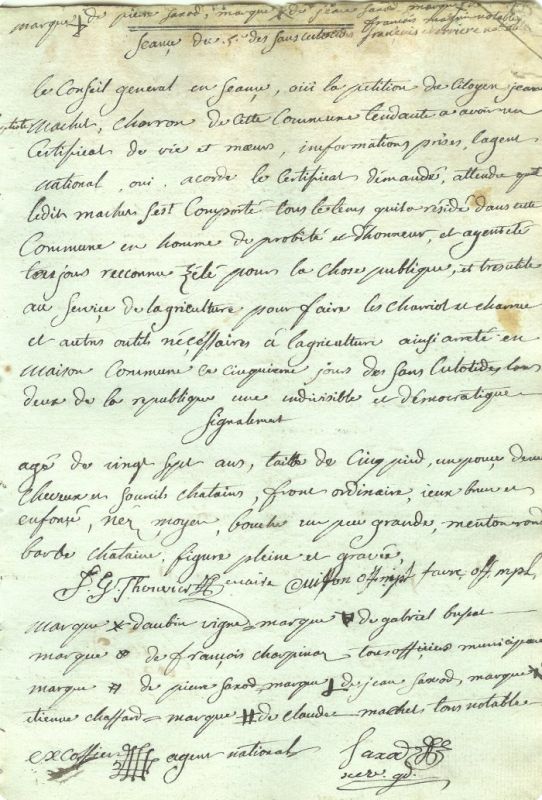 marque de pierre saxod, marque de jean saxod, marque
francois notable
francois
Seançe du 5e des Sans Culotides
le Conseil general en Seançe, oüi la petition du Citoyen jean
Machet, charron de Cette Commune tendante a avoir un
Certificat de vie et mœurs, informations prises, lagent
national oui, acorde le Certificat démandé, attendu que
ledit machet s'est Comporté tous le tems quil a résidé dans cette
Commune en homme de probité et dhonneur, et agent été
tousjours reconnu zélé pour la chose publique, et tres utile
au Serviçe de lagriculture pour faire les chariot et charrue
et autres outils néçéssaires à lagriculture ainsi arreté en
Maison Commune le Cinquieme jours des Sans Culotides lans
deux de la republique une indivisible et démocratique
Signalement
agé de vingt sept ans, taille de Cinq pied, un pouçe deux
Cheveux et Sourcils chatains, front ordinaire, ieux brun et
enfonsé, néz moyen, bouche un peu grande, menton rond
barbe chataine, figure pleine et gravée
J. G. Thouvier maire Cuisson off. mpl favre off. mpl
marque x daubin vigne = marque de gabriel
marque de françois charpinaz tous offiçiers municipaux
marque de pierre saxod = marque de jean saxod, marque
etienne chaffard = marque de claude machet tous notable
excoffier agent national Saxod
secre. gd.